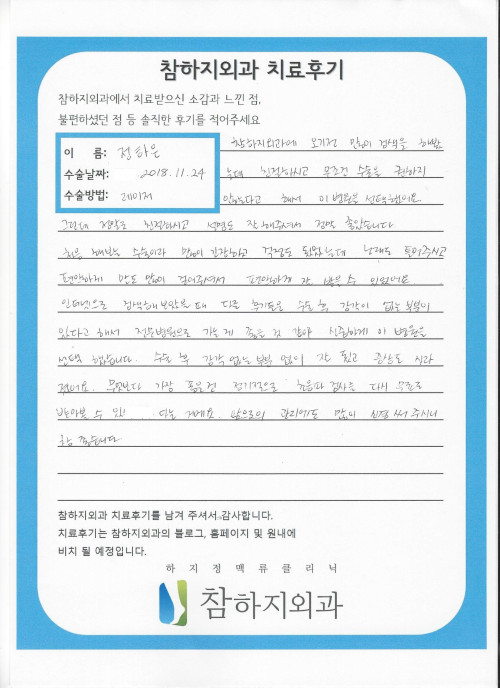 참하지외과 치료후기
참하지외과에서 치료받으신 소감과 느낀 점,
불편하셨던 점 등 솔직한 후기를 적어주세요
이 름: 정하은
수술날짜: 2018.11.24
수술방법: 레이저
참하지외과에 오기전 많이 검색을 해봤
는데 친절하시고 무조건 수술을 권하지
않는다고 해서 이 병원을 선택했어요
그런데 정말로 친절하시고 설명도 잘 해주셔서 정말 좋았습니다
처음 해보는 수술이라 많이 긴장하고 걱정도 되었는데 노래도 틀어주시고
편안하게 말도 많이 걸어주셔서 편안하게 잘 받을 수 있었어요
인터넷으로 검색해보았을 때 다른 후기들은 수술 후 감각이 없는 부분이
있다고 해서 전문병원으로 가는게 좋을 것 같아 신중하게 이 병원을
선택 했습니다. 수술 후 감각 없는 부분 없이 잘 됐고 증상도 사라
졌어요. 무엇보다 가장 좋은건 정기적으로 초음파 검사를 다시 무료로
받아볼 수 있 다는 거예요. 앞으로의 관리에도 많이 신경 써 주시니
참 좋습니다
참하지외과 치료후기를 남겨 주셔서 감사합니다.
치료후기는 참하지외과의 블로그, 홈페이지 및 원내에
비치 될 예정입니다.
하지정맥류클리닉
참하지외과